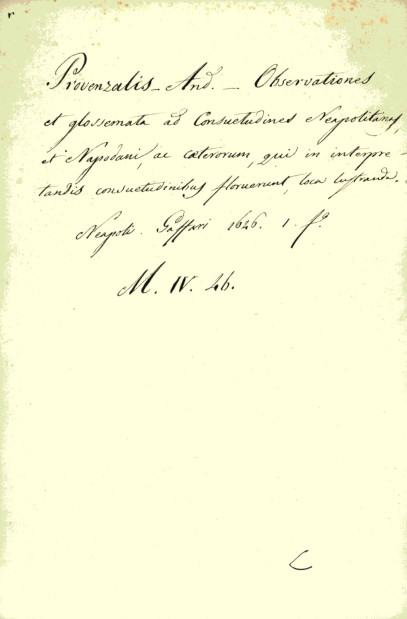 Provenzalis_ And. _ Observationes
et glossemata ad Consuetudines Neapolitanas,
et Napodani, ac cæterorum, qui in interpre-
tandis consuetudinibus floruerunt, loca lustranda.
Neapoli. Gaffari 1626. 1. fº.
M. IV. 26.